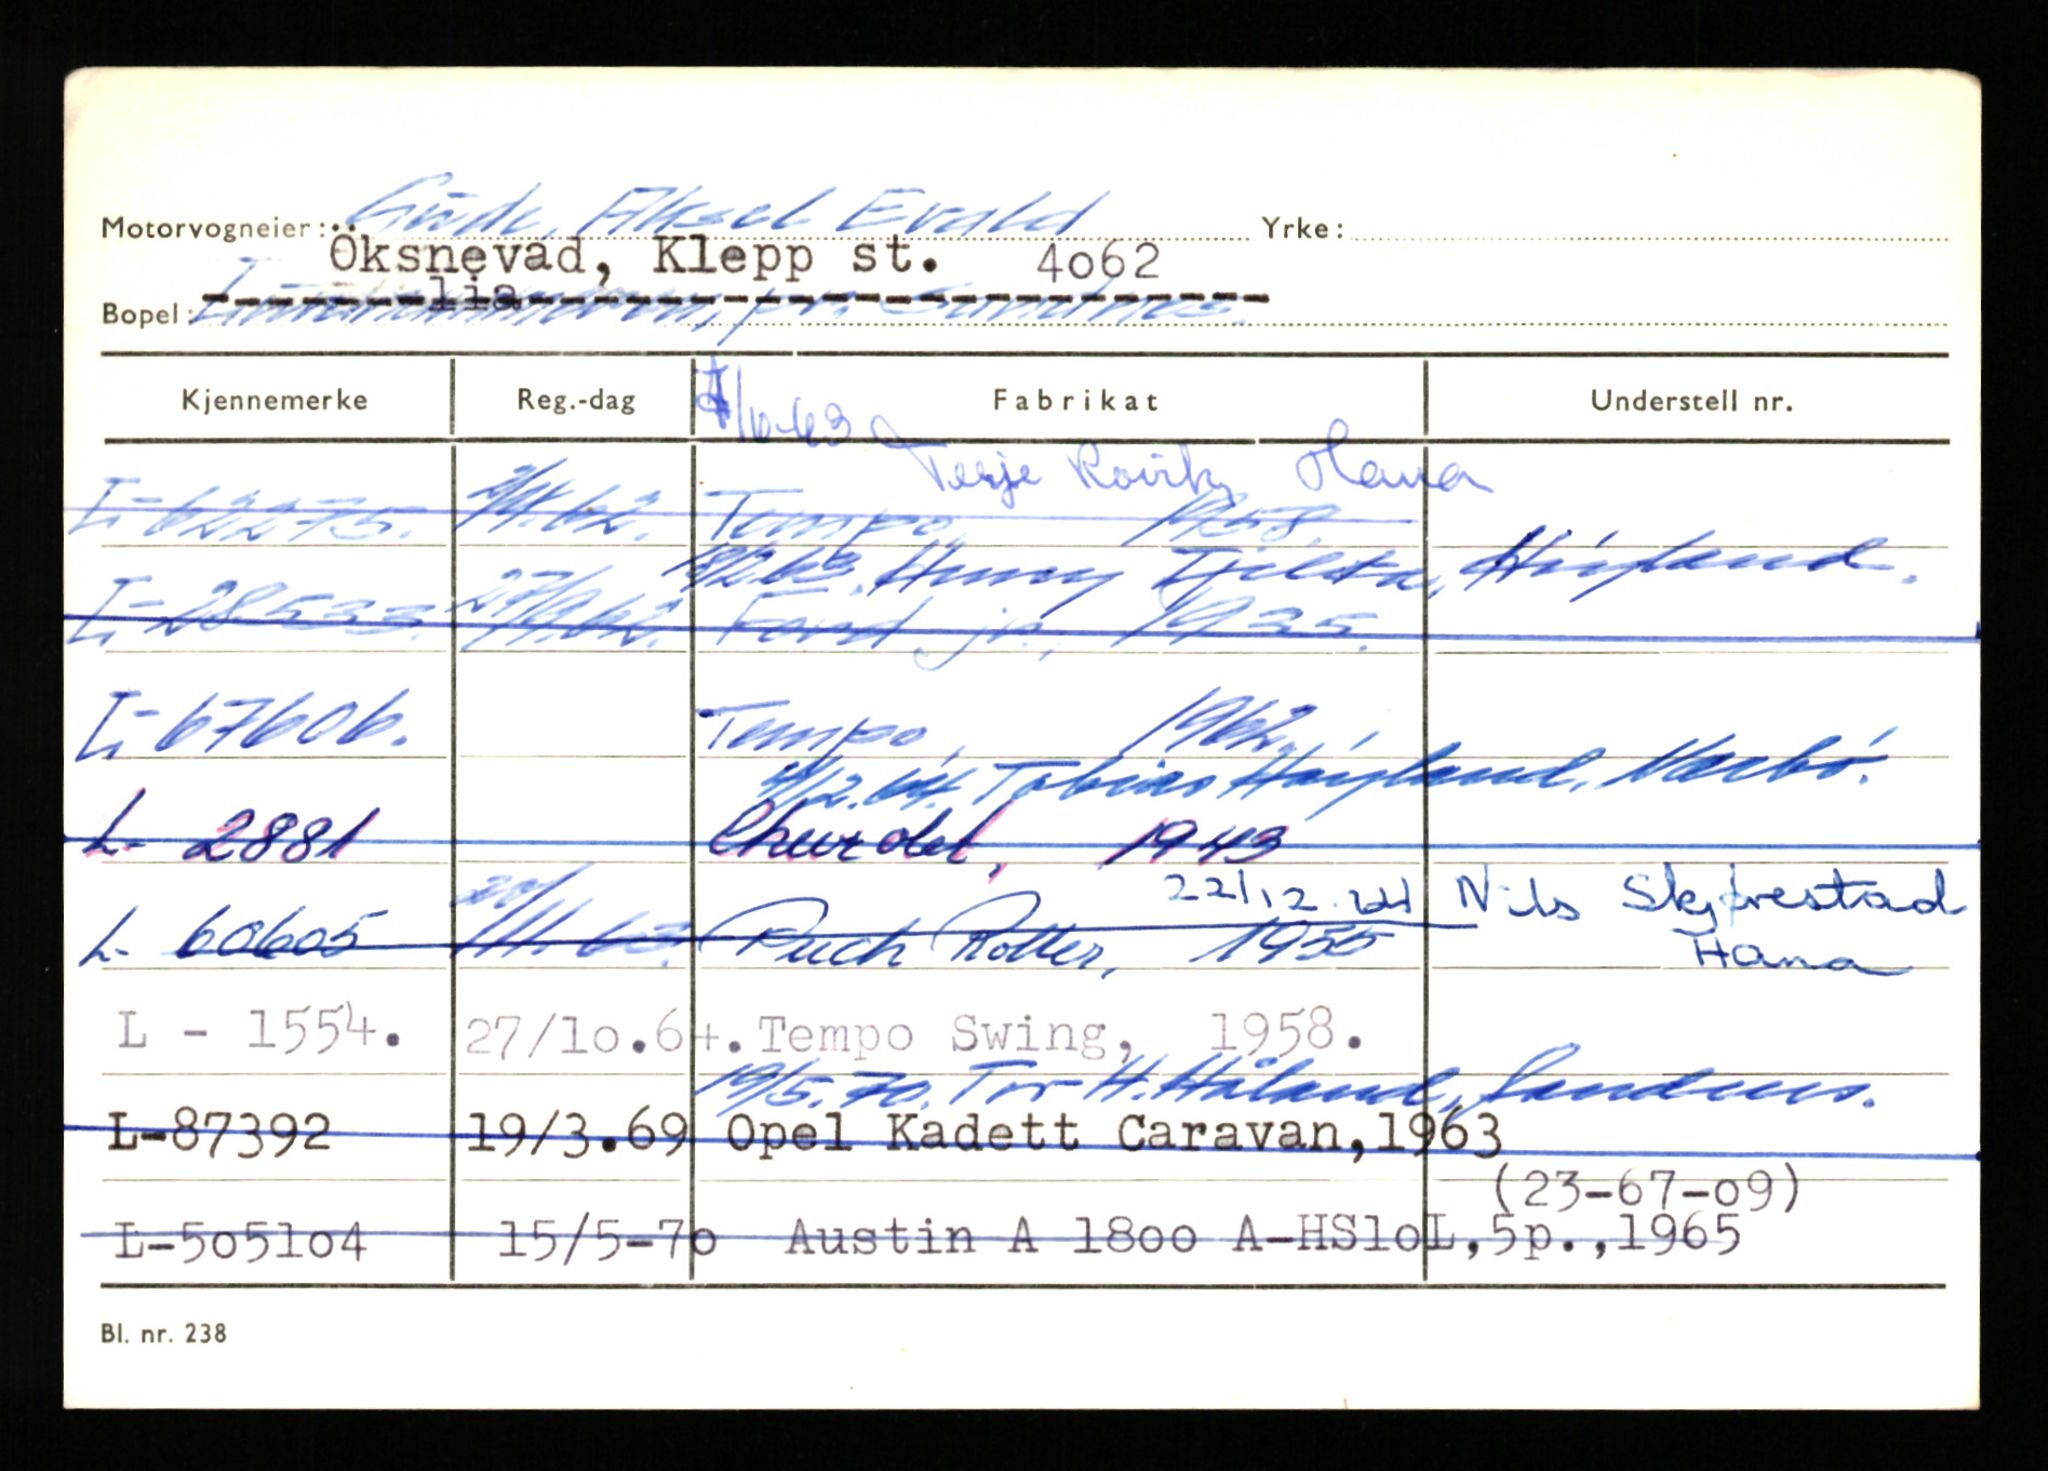 Motorvogneier: Gude, Aksel Evald Yrke:
Öksnevad, Klepp st. 4062
lia
Bopel: pr. Sandnes.
Kjennemerke Reg.-dag Fabrikat Understell nr.
/10-63 Terje Rovik, Hana
L-62275. 2/4.62. Tempo, 1958.
Henry Tjelta, Høyland.
L-28533. 27/9.62. Ford jr., 1935.
L-67606. Tempo, 1962.
4/12.64. Tobias Høyland, Nærbø.
L- 2881 Chevrolet, 1943
22/12.64 Nils Skjørestad
L- 60605 20/11.63. Puch Roller, 1955
Hana
L - 1554. 27/10.64. Tempo Swing, 1958.
19/5.70. Tor H. Håland, Sandnes.
L-87392 19/3.69 Opel Kadett Caravan,1963
(23-67-09)
L-505104 15/5-70 Austin A 1800 A-HS10L,5p.,1965
Bl. nr. 238